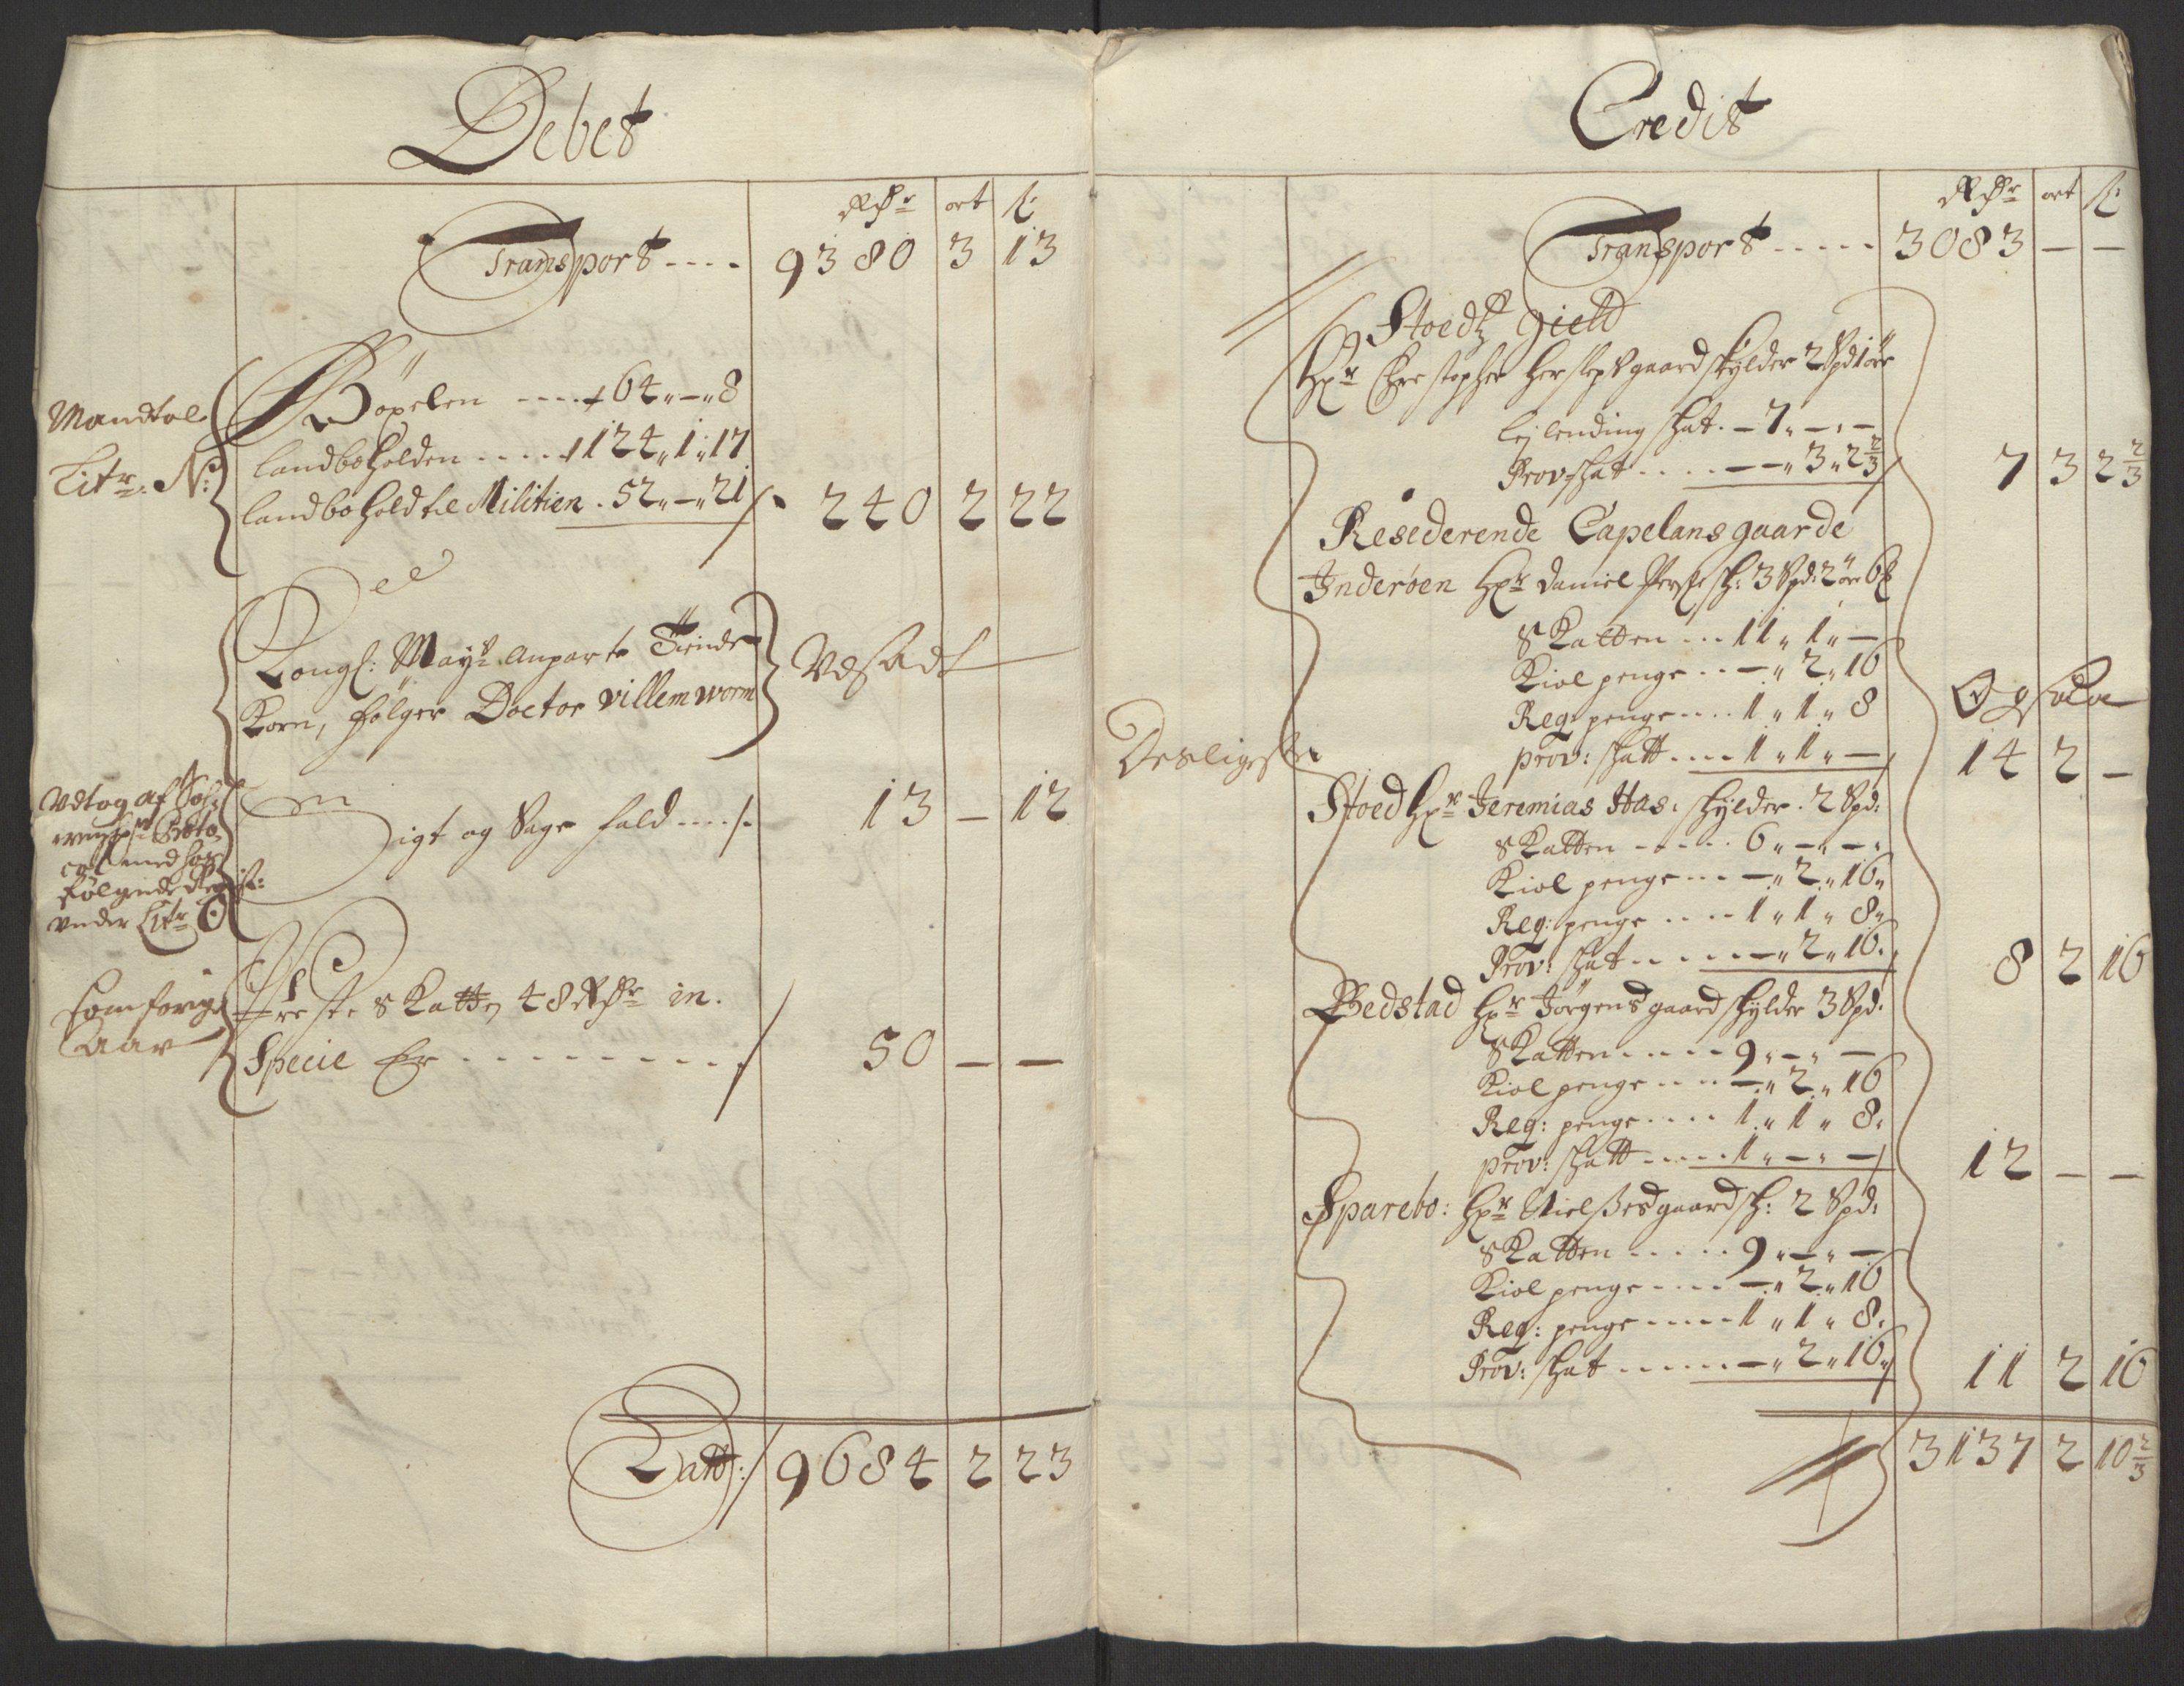 Debet
Rdr ort ß
Transport ---- 9380 3 13
Mandtal
Litr. N:
Böxelen ---- 64 „ – „ 8
landboholden ---- 124 „ 1 „ 17
landbohold til Militien . 52 „ – „ 21 240 2 22
Kongl: Mayts anparte Tiende
Korn, følger Doctor villem worm
Vdtog af
col med hos
følgende
vnder Litr O
Sigt og Sage fald ---- 13 – 12
som forige
Aar
Preste Skatten 48 Rdr in.
Specie Er -------- 50 – –
Latt: 9684 2 23
Credit
Rdr ort ß
Transport ----- 3083 – –
Stoedtz gield
Hr Christopher Herslepsgaard skylder 2 Spd 1 ör
lejlending skat. – 7 „ – „ –
Prov skat ---- – „ 3 „ 2 2/3 7 3 2 2/3
Resederende Capelans gaarde
Inderöen Hr Daniel sk: 3 Spd: 2 ör 6
Skatten --- 11 „ 1 „ –
Kiol penge --- – „ 2 „ 16
Reg: penge ---- 1 „ 1 „ 8
Desligeste
prov: skatt ---- 1 „ 1 „ – 14 2 –
Stoed Hr Jeremias Has: skylder . 2 Spd:
Skatten ----- 6 „ – „ – „
Kiol penge --- – „ 2 „ 16 „
Reg: penge ---- 1 „ 1 „ 8 „
Prov: skat ----- – „ 2 „ 16 . 8 2 16
Bedstad Hr Jörgens gaard skylder 3 Spd.
Skatten ----- 9 „ – „ –
Kiol penge ---- – „ 2 „ 16
Reg: penge ---- 1 „ 1 „ 8 „
prov: skatt ----- 1 „ – „ – 12 – –
Sparebo: Hr Nielsses gaard sk: 2 Spd:
Skatten ----- 9 „ – „ –
Kiol penge ---- – „ 2 „ 16
Reg: penge ----- 1 „ 1 „ 8 .
Prov: skat ------ – „ 2 „ 16 „ 11 2 16
3137 2 10 2/3